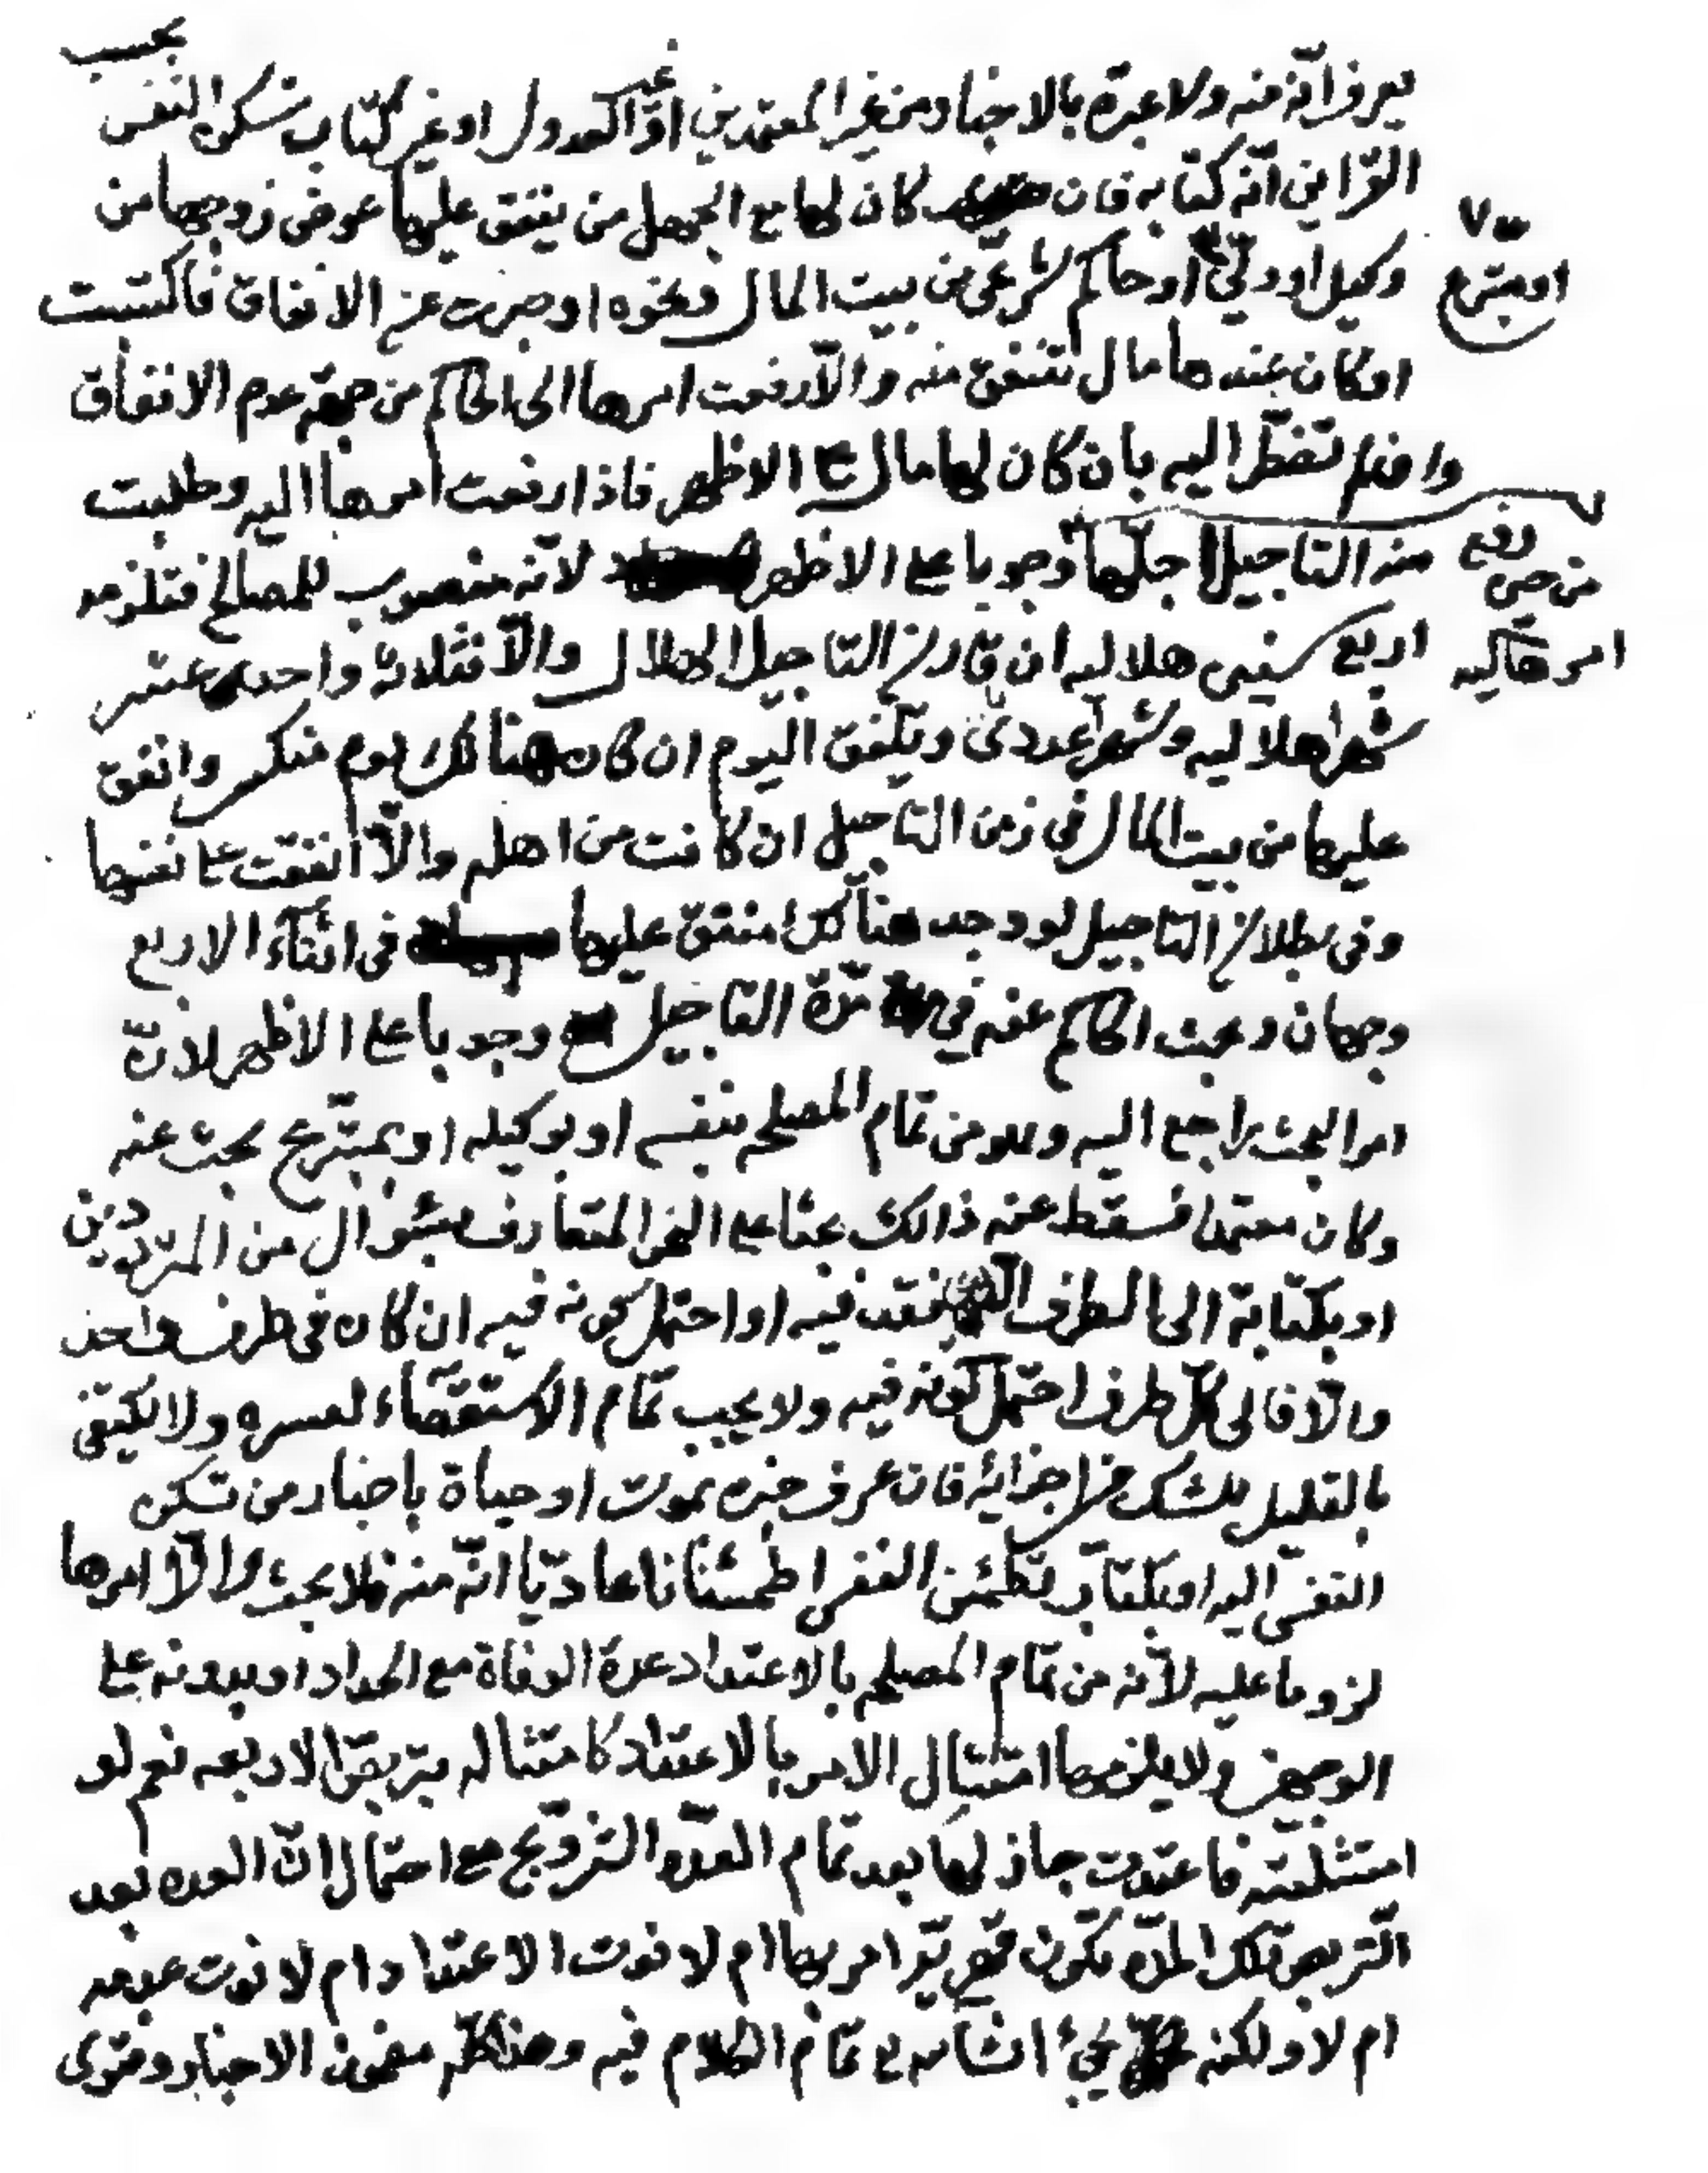 بحسب
يعرف انّه منه ولا عبرة بالاخبار من غير المعتمدين او غير العدول او غير كتاب تسكن النفس
القراين انّه كتابه فان كان لها مع الجهل من ينفق عليها عوض زوجها من
وكيل او وليّ او حاكم شرعيّ من بيت المال ونحوه او صبرت عن الانفاق فاكتسبت
او متبرع
او كان عندها مال تنفق منه والّا رفعت امرها الى الحاكم من جهة عدم الانفاق
وان لم تضطرّ اليه بان كان لها مال على الاظهر فاذا رفعت امرها اليه وطلبت
منه التاجيل اجّلها وجوبا على الاظهر لانّه منصوب للمصالح فتلزمه
من حين رفع
امرها اليه
اربع سنين هلاليه ان قارن التاجيل الهلال والّا فثلاثة واحد عشر
شهرا هلاليه وشهرا عددى ويلفق اليوم ان كان هنالك يوم منكسر وانفق
عليها من بيت المال فى زمن التاجيل ان كانت من اهله والّا انفقت على نفسها
وفى بطلان التاجيل لو وجد هنالك منفق عليها فى اثناء الاربع
وجهان وبحث الحاكم عنه في مدّة التاجيل وجوبا على الاظهر لانّ
امر البحث راجع اليه وهو من تمام المصلحه بنفسه او بوكيله او بمتبرّع بحث عنه
وكان معتمدا فسقط عنه ذالك بحثا على النحو المتعارف بسؤال من المتردّدين
او بكتابة الى الطرف فقد فيه او احتمل كونه فيه ان كان فى طرف واحد
والّا فالى كلّ طرف احتمل كونه فيه ولا يجب تمام الاستقصاء لعسره ولا يكتفى
بالقليل للشك فى اجزائه فان عرف خبره بموت او حياة باخبار من تسكن
النفس اليه او بكتاب تطمئن النفس اطمئنانا عاديّا انّه منه فلا بحث والّا امرها
لزوما عليه لانّه من تمام المصلحه بالاعتداد عدة الوفاة مع الحداد او بدونه على
الوجهين ولا يلزمها امتثال الامر بالاعتداد كامتثاله بتربّص الاربعه نعم لو
امتثلته فاعتدت جاز لها بعد تمام العدّه التزويج مع احتمال انّ العده بعد
التّربص تلك المدّه تكون قهريّه امر بها ام لا نوت الاعتداد ام لا نوت عدمه
ام لا ولكنه يجئ انشاءلله تمام الكلام فيه وهذا كلّه مضمون الاخبار وفتوى